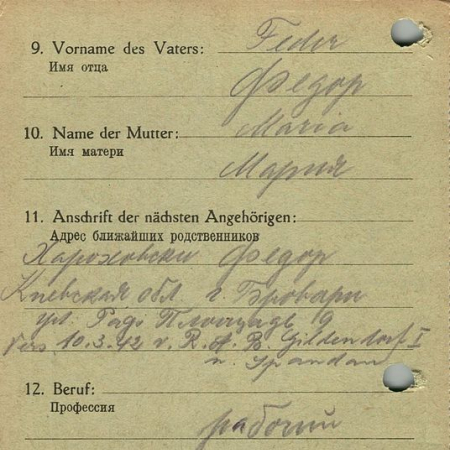 9. Vorname des Vaters: Fedir
Имя отца
Федор
10. Name der Mutter: Maria
Имя матери
Мария
11. Anschrift der nächsten Angehörigen:
Адрес ближайших родственников
Федор
Киевская обл г. Бровари
ул. Площадь 9
Vers 10.3.42 v. R. A. B. Gildendorf I
n. Spandau
12. Beruf:
Профессия
рабочий